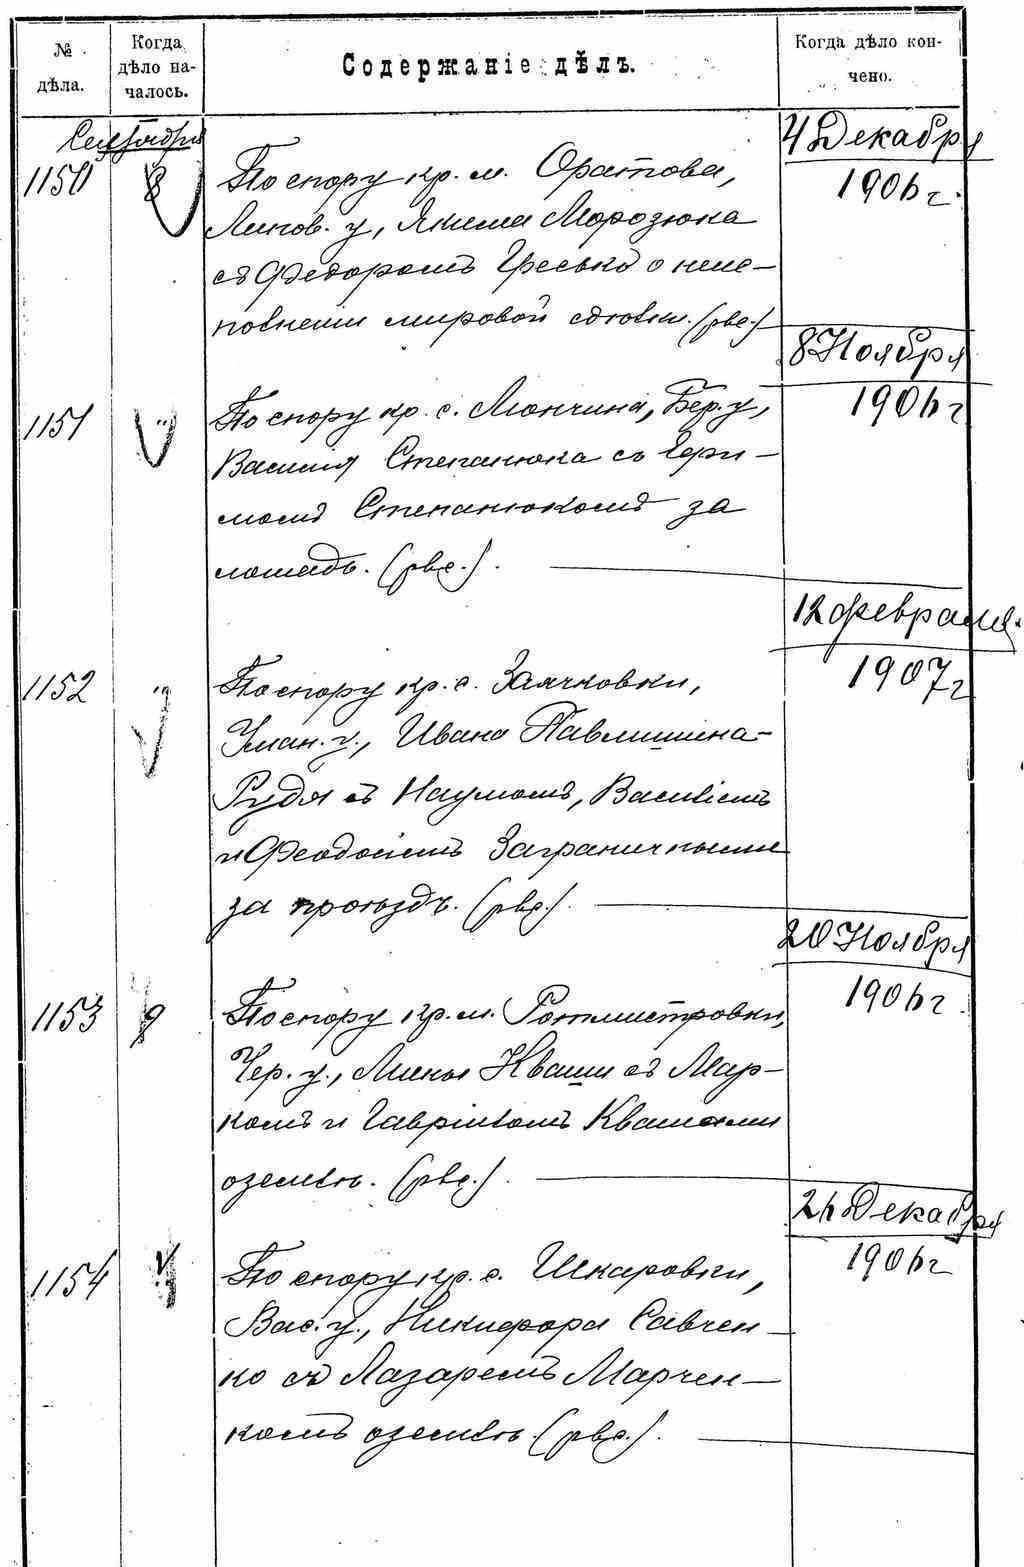 №
дѣла.
Когда
дѣло на-
чалось.
Содержаніе дѣлъ.
Когда дѣло кон-
чено.
Сентября
4 Декабря
1906 г.
1150
8
По спору кр. м. Оратова,
Липов. у, Якима Морозюка
съ Федоромъ Гресько о неис-
полнении мировой сдѣлки. (рвс.)
8 Ноября
1906 г
1151
"
По спору кр. с. Мончина, Бер. у,
Василія Степанюка съ Ефи-
момъ Степанюкомъ за
лошадь. (рвс.).
12 февраля
1907 г
1152
"
По спору кр. с. Заячковки,
Уман. у., Ивана Павлишина-
Рудя съ Наумомъ, Василіемъ
и Феодосіемъ Заграничными
за проѣздъ. (рвс.).
20 Ноября
1906 г
1153
9
По спору кр. м. Ротмистровки,
Чер. у., Мины Кваши съ Мар-
комъ и Гавріиломъ Квашами
о землѣ. (рвс.).
26 Декабря
1906 г
1154
"
По спору кр. с. Шкаровки,
Вас. у., Никифора Савчен-
ко съ Лазаремъ Марчен-
комъ о землѣ. (рвс.).